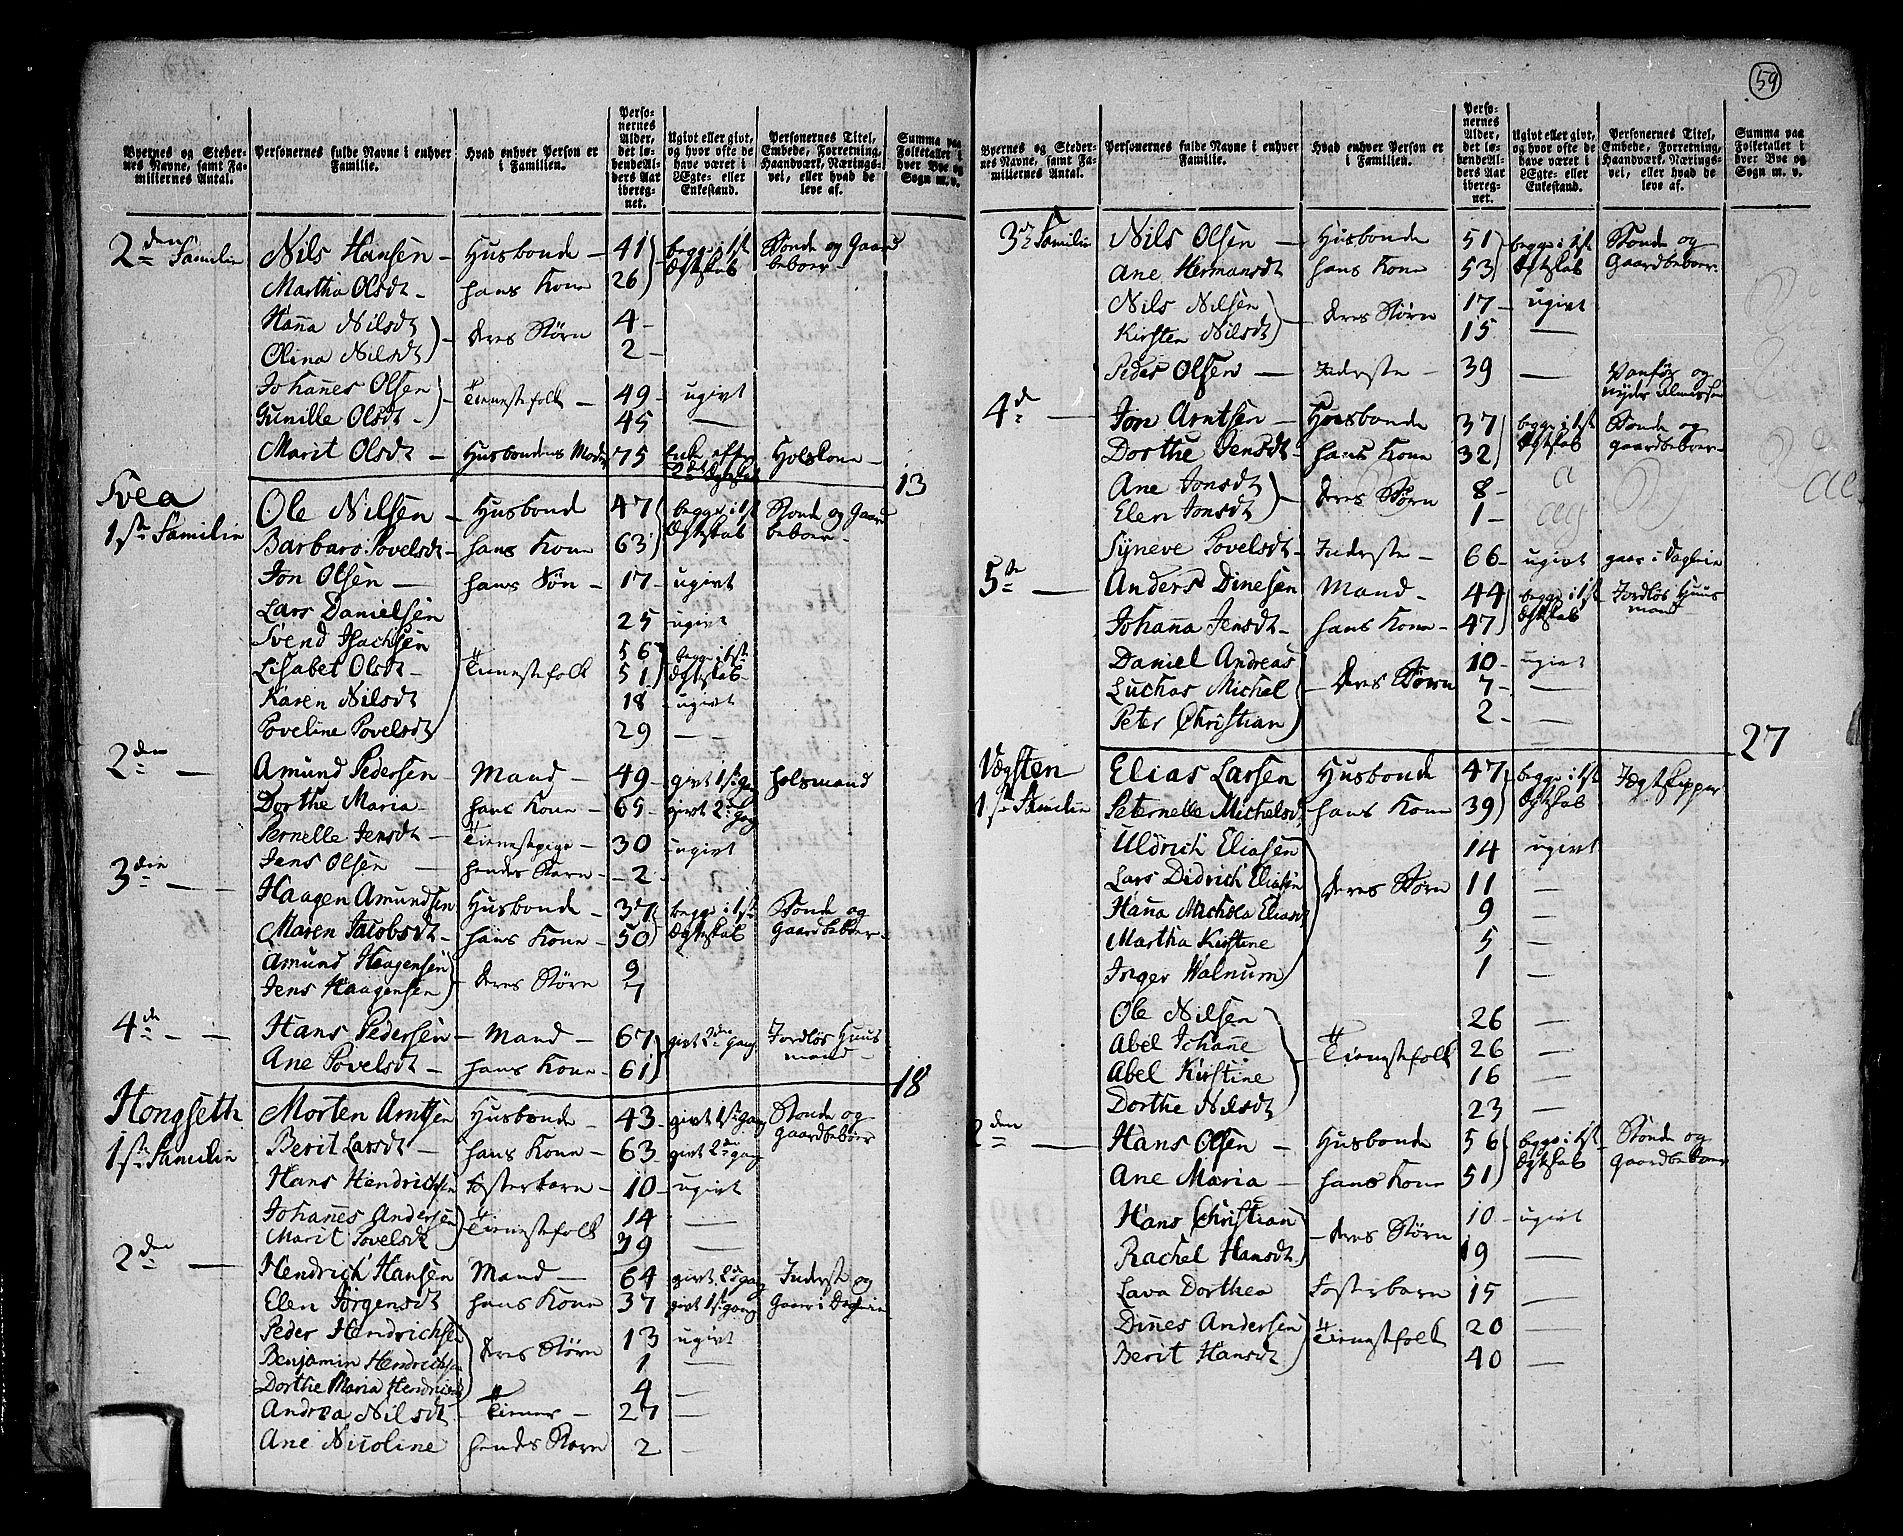 59
Byernes og Stedernes Navne, samt Familiernes Antal.
Personernes fulde Navne i enhver Familie.
Hvad enhver Person er i Familien.
Personernes Alder, det løbende Alders Aar iberegnet.
Ugivt eller givt, og hvor ofte de have været i Ægte- eller Enkestand.
Personernes Titel, Embede, Forretning, Haandværk, Næringsvei, eller hvad de leve af.
Summa paa Folketallet i hver Bye og Sogn m. v.
2den Familie Nils Hansen – Husbonde – 41 begge i 1st Bonde og Gaard
Martha Olsdt – hans Kone 26 Ægtskab beboer –
Hanna Nilsdt deres Børn 4 –
Olina Nilsdt 2 –
Johannes Olsen Tienestefolk – 49 – ugivt
Gunille Olsdt – 45 —
Marit Olsdt – Husbondens Moder 75 Enk efter 2det Ægteskab Holskone –
13
Svea Ole Nilsen – Husbond 47 begge i 1st Bonde og Gaard
1ste Familie Barbaro Povelsdt – hans Kone 63 Ægtskab beboer –
Jon Olsen — hans Søn – 17 – ugivt
Lars Danielsen 25 – ugivt
Svend Isachsen 56 begge i 1st
Lisabet Olsdt – Tienestfolk 51 Ægtskab –
Karen Nilsdt 18 – ugivt
Poveline Povelsdt 29 – —
2den — Amund Pedersen – Mand – 49 – givt 1ste Gang Holsmand
Dorthe Maria – hans Kone – 65 – givt 2den Gang
Pernelle Jensdt – Tienestpige – 30 – ugivt
Jens Olsen — hendes Barn – 2 –
3die — Haagen Amundsen Husbonde – 37 begge i 1st Bonde og
Maren Jacobsdt – hans Kone – 50 Ægtskab Gaardbeboer –
Amund Haagensen deres Børn 9
Jens Haagensen 7
4de — Hans Pedersen – Mand – 67 givt 2den gang Jordløs Huus
Ane Povelsdt – hans Kone – 61 mand –
18
Hongseth Morten Arntsen Husbonde – 43 – givt 1ste gang Bonde og
Berit Larsdt – hans Kone – 63 – givt 2den gang Gaardbeboer
1ste Familie
Hans Hendrichsen Fosterbarn – 10 – ugivt
Johannes Andersen Tienestfolk 14 —
Marit Povelsdt 39 —
2den — Hendrich Hansen Mand — 64 givt 2den gang Inderste og
Elen Jørgensdt hans Kone 37 givt 1ste gang Gaar i Dagleie
Peder Hendrichsen 13 ugivt
Benjamin Hendrichsen deres Børn 1 —
Dorthe Maria Hendrichsd 4 —
Andrea Nilsdt – Tiener – 27 —
Ane Nicoline hendes Barn 2 –
Byernes og Stedernes Navne, samt Familiernes Antal.
Personernes fulde Navne i enhver Familie.
Hvad enhver Person er i Familien.
Personernes Alder, det løbende Alders Aar iberegnet.
Ugivt eller givt, og hvor ofte de have været i Ægte- eller Enkestand.
Personernes Titel, Embede, Forretning, Haandværk, Næringsvei, eller hvad de leve af.
Summa paa Folketallet i hver Bye og Sogn m. v.
3die Familie Nils Olsen – Husbonde 51 begge i 1st Bonde og
Ane Hermansdt hans Kone 53 Ægtskab Gaardbeboer –
Nils Nilsen deres Børn 17 – ugivt
Kirsten Nilsdt 15 —
Peder Olsen — Inderste – 39 — Vanfør og nyder Almisse
4de — Jon Arntsen – Husbonde 37 begge i 1st Bonde og
Dorthe Jensdt – hans Kone 32 Ægtskab gaardbeboer –
Ane Jonsdt deres Børn 8 –
Elen Jonsdt 1 –
Syneve Povelsdt – Inderste – 66 – ugivt gaar i Dagleie
5te — Anders Dinesen Mand – 44 begge i 1st Jordløs Huus
Johanna Jensdt – hans Kone – 47 Ægtskab mand
Daniel Andreas 10 – ugivt
Luchas Michel – deres Børn 7 – —
Peter Christian 2 – —
27
Vægsten Elias Larsen Husbonde 47 begge i 1st Jægtskipper
1ste Familie Peternelle Michelsd. hans Kone 39 Ægtskab
Uldrich Eliasen 14 ugivt
Lars Didrich Eliasen deres Børn 11 —
Hanna Michela Eliasdt 9 —
Martha Kirstine 5 —
Inger Walnum 1 —
Ole Nilsen 26 —
Abel Johanne – Tienestfolk 26 —
Abel Kirstine 16 —
Dorthe Nilsdt 23 —
2den — Hans Olsen – Husbonde 56 begge i 1st Bonde og
Ane Maria – hans Kone 51 Ægtskab Gaardbeboer
Hans Christian – deres Børn 10 – ugivt
Rachel Hansdt 19 —
Lava Dorthea Fosterbarn 15 —
Dines Andersen Tienestfolk 20 —
Berit Hansdt 40 —